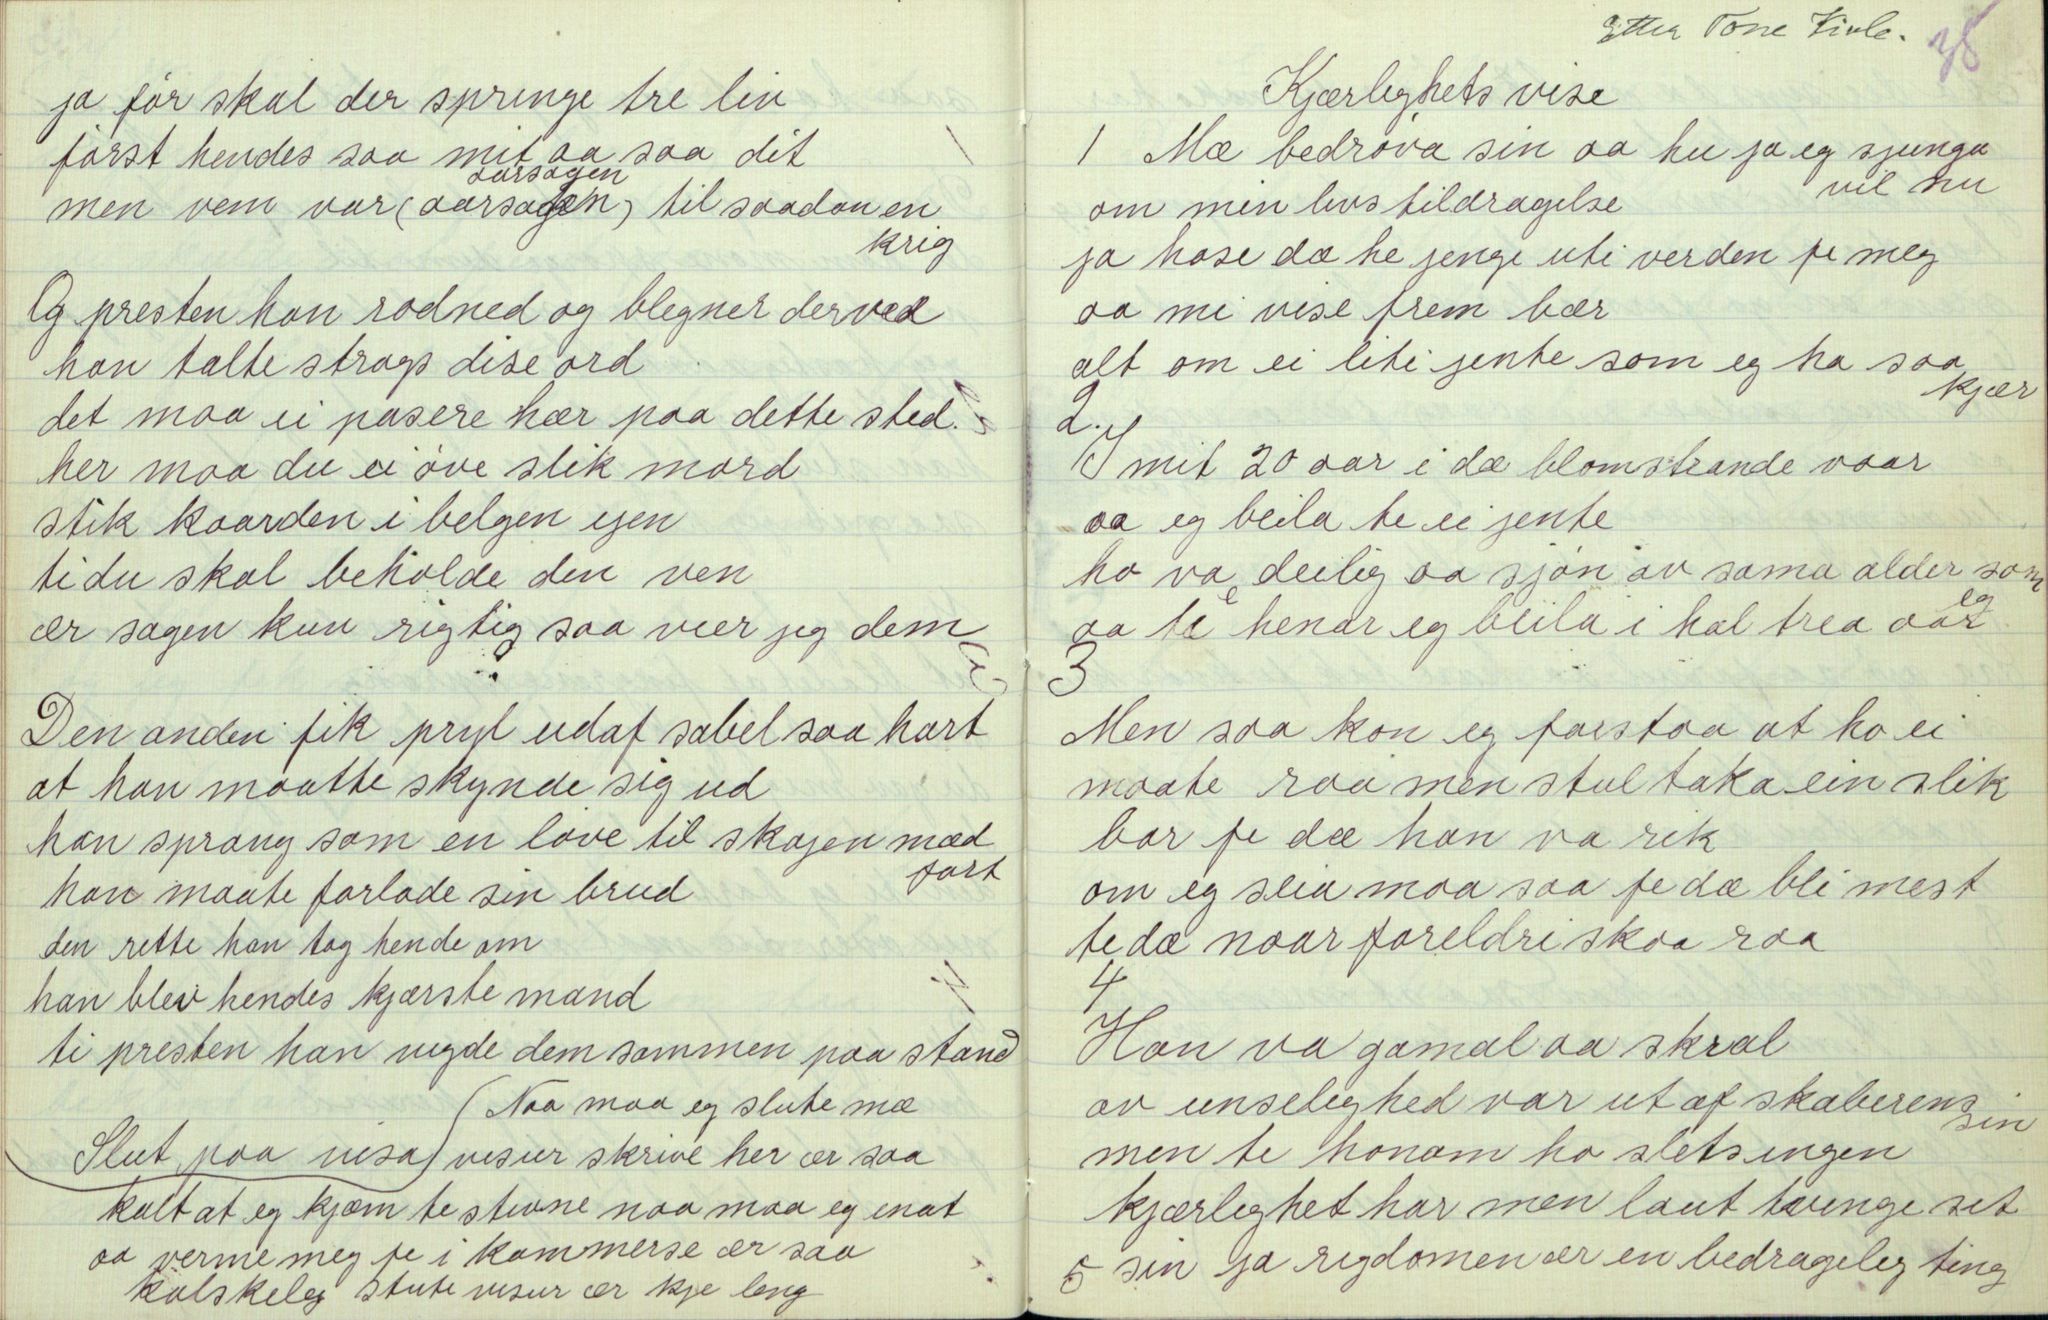 ja før skal der springe tre liv
først hendes saa mit aa saa dit
aarsagen
men vem var (aarsagen) til saadan en
krig
Og presten han rødned og blegner derved
han talte strags dise ord
det maa ei pasere hær paa dette sted.
her maa du ei øve slik mord
stik kaarden i belgen ejen
ti du skal beholde den ven
ær sagen kun rigtig saa vier jeg dem
Den anden fik pryl udaf sabel saa hart
at han maatte skynde sig ud
han sprang som en løve til skogen mæd
fart
han maate forlade sin brud
den rette han tog hende om
han blev hendes kjærste mand
ti presten han vigde dem sammen paa stand
(Naa maa eg slute mæ
Slut paa visa) visur skrive her ær saa
kalt at eg kjæm te stivne naa maa eg inat
aa verme meg fe i kammerse ær saa
kalskeleg stute visur ær kje leng
Etter Tone Kivle.
38
Kjærleghets vise
1 Mæ bedrøva sin aa hu ja eg sjunga
vil nu
om min livs tildragelse
ja hose dæ he jenge uti verden fe meg
aa mi vise frem bær
alt om ei liti jente som eg ha saa
kjær
2.
I mit 20 aar i dæ blomstrande vaar
aa eg beila te ei jente
ho va deilig aa sjøn av sama alder som
eg
aa te henar eg beila i hal trea aar
3
Men saa kon eg forstaa at ho ei
maate raa men stul taka ein slik
bar fe dæ han va rik
om eg seia maa saa fe dæ bli mest
te dæ naar foreldri skaa raa
4
Han va gamal aa skral
av unselighed var ut af skaberens
sin
men te honom ho slets ingen
kjærleghet har men laut tvinge sit
5 sin ja rigdomen ær en bedrageleg ting